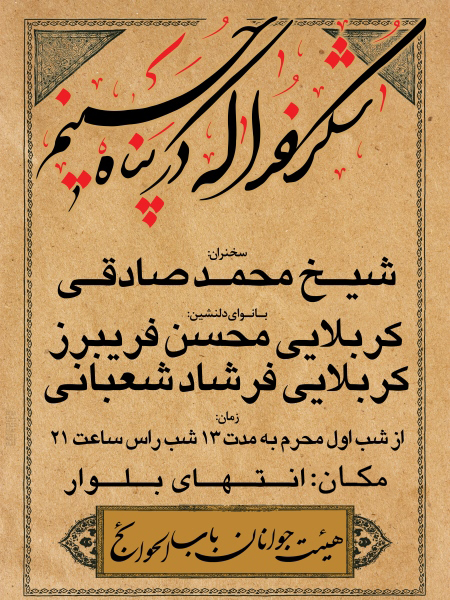 شکر خدا که در پناه حسینم
سخنران:
شیخ محمد صادقی
بانوای دلنشین:
کربلایی محسن فریبرز
کربلایی فرشاد شعبانی
زمان:
از شب اول محرم به مدت ۱۳ شب راس ساعت ۲۱
مکان: انتهای بلوار
هیئت جوانان باب الحوائج